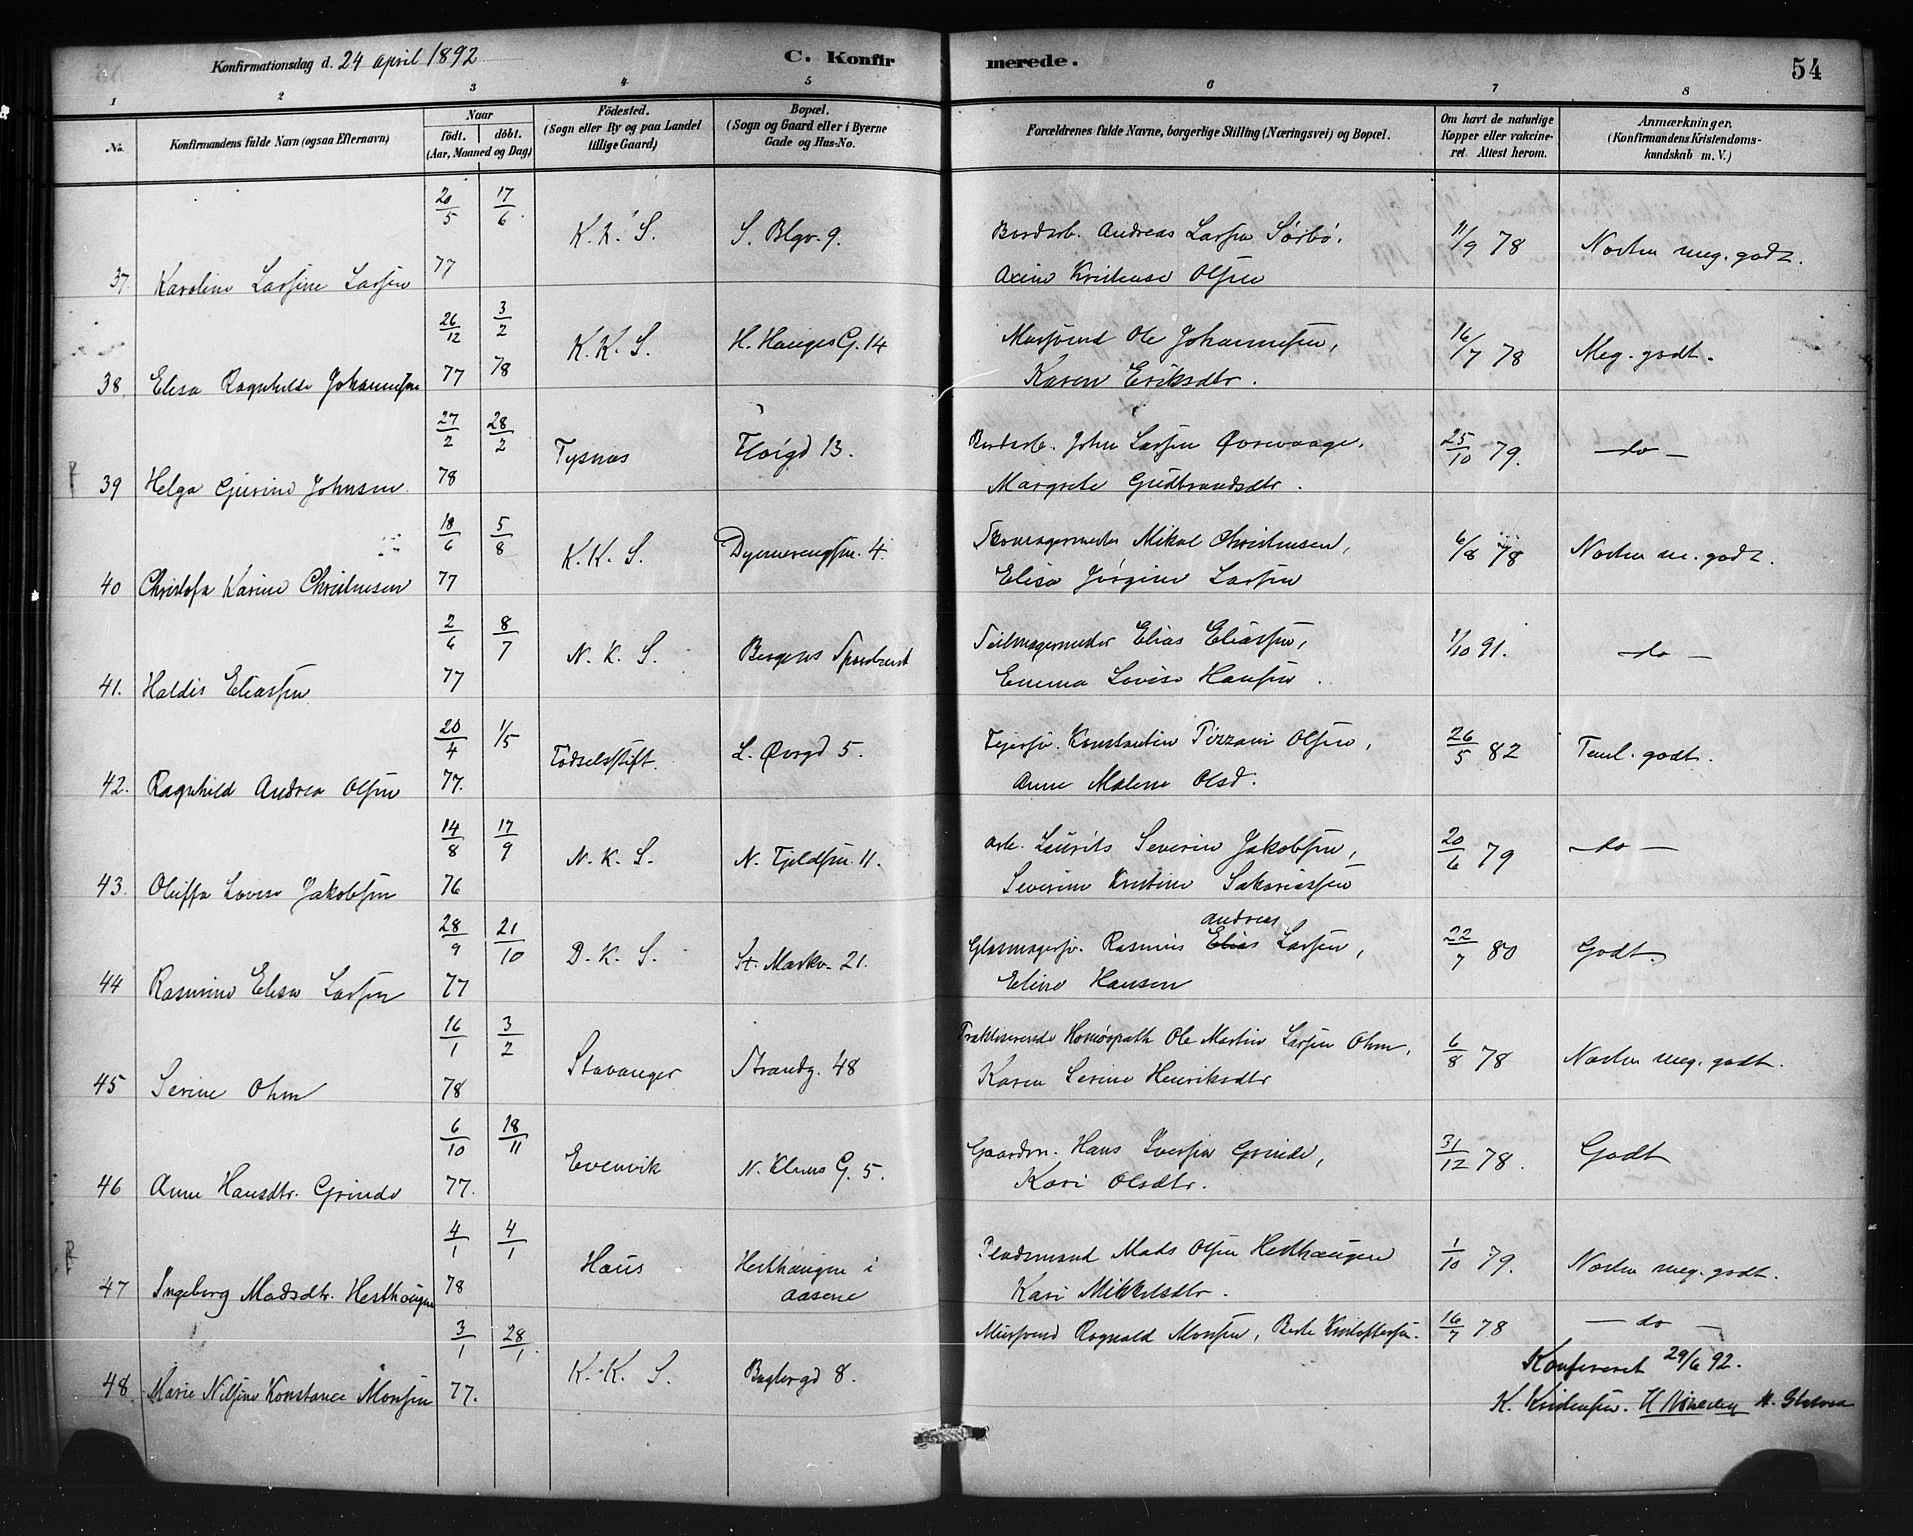 Konfirmationsdag d. 24 april 1892
C. Konfirmerede.
54
1 2 3 4 5 6 7 8
No.
Konfirmandens fulde Navn (ogsaa Efternavn)
Naar
födt. döbt.
(Aar, Maaned og Dag)
Födested.
(Sogn eller By og paa Landet
tillige Gaard)
Bopæl.
(Sogn og Gaard eller i Byerne
Gade og Hus-No.
Forældrenes fulde Navne, borgerlige Stilling (Næringsvei) og Bopæl.
Om havt de naturlige
Kopper eller vakcine-
ret. Attest herom.
Anmærkninger,
(Konfirmandens Kristendoms-
kundskab m. V.)
20/5 17/6
K. K. S. S. Blgv. 9. Andreas Larsen Sørbø, 11/9 78 Næsten meg. godt.
37. Karoline Larsine Larsen 77 Axine Kristense Olsen
26/12 3/2
K. K. S. H. Hauges G. 14 Mursvend Ole Johannesen, 16/7 78 Meg. godt.
38. Elisa Ragnhilde Johannesen 77 78 Karen Eriksdtr.
27/2 28/2
Tysnæs Fløigd 13. John Larsen Øvrevaage, 25/10 79. do
39 Helga Gurine Johnsen 78 Margrete Gudbrandsdtr.
18/6 5/8
K. K. S. 4. Skomagermester Mikal Christensen, 6/8 78 Næsten m. godt.
40 Christofa Karine Christensen 77 Elisa Jørgine Larsen
2/6 8/7
N. K. S. Bergens Seilmagermester Elias Eliassen, 1/10 91. do
41. Haldis Eliassen 77 Emma Lovise Hansen.
20/4 1/5
Födselsstift. L. Øvrgd 5. Konstantin Olsen, 26/5 82 Teml. godt.
42. Ragnhild Andrea Olsen 77. Anne Malene Olsd.
14/8 17/9
N. K. S. N. Fjeldsm. 11. Arb. Laurits Severin Jakobsen, 20/6 79 do
43. Oluffa Lovise Jakobsen 76 Severine Kristine Sakariassen
28/9 21/10
Andreas
D. K. S. St. Markv. 21. Glasmagersv. Rasmus Elias Larsen, 22/7 80 Godt.
44 Rasmine Elisa Larsen 77 Eline Hansen
16/1 3/2
Stavanger Strandg. 48 Praktiserende Homöopath Ole Martin Larsen Ohm, 6/8 78 Næsten meg. godt.
45 Serine Ohm 78 Karen Serine Henriksdtr
6/10 18/11
Evenvik N. Klems G. 5. Gaardm. Hans Iversen Grinde, 31/12 78. Godt
46 Anne Hansdtr. Grinde 77. Kari Olsdtr.
4/1 4/1
Haus Hesthaugen i Pladsmand Mads Olsen Hesthaugen 1/10 79. Næsten meg. godt.
47 Ingeborg Madsdtr. Hesthaugen 78 aasene Kari Mikkelsdtr.
3/1 28/1. Mursvend Ragnvald Monsen, 16/7 78 do
K. K. S. Baglergd 8. Konfereret 29/6 92.
48. Marie Nilsine Konstance Monsen 77. K. Kristensen.